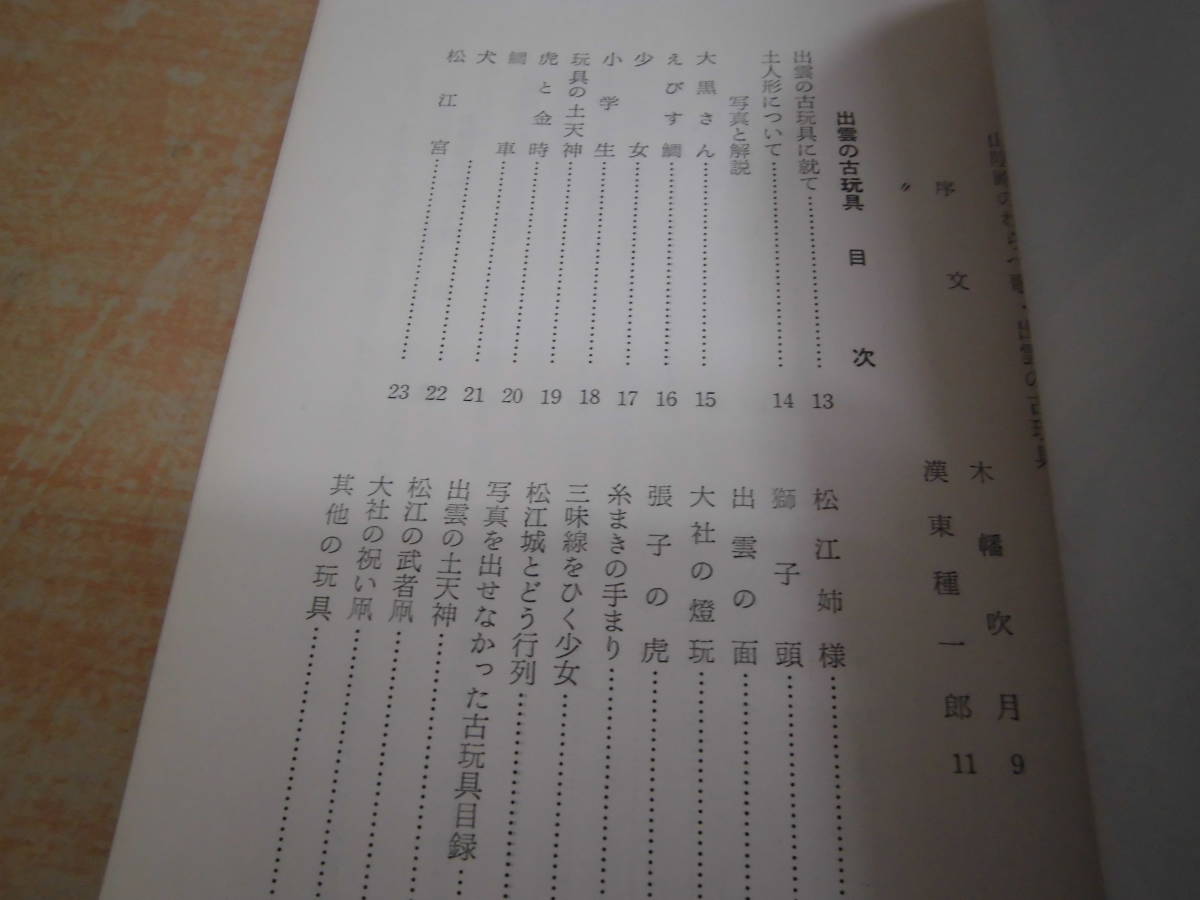 山陰路のわらべ・出雲の古玩具
序文 木幡吹月 9
〃 漢東種一郎 11
出雲の古玩具 目次
出雲の古玩具に就て……………… 13
土人形について……………… 14
写真と解説
大黒さん……………… 15
えびす鯛……………… 16
少女……………… 17
小学生……………… 18
玩具の土天神……………… 19
虎と金時……………… 20
鯛車……………… 21
犬……………… 22
松江宮……………… 23
松江姉様………………
獅子頭………………
出雲の面………………
大社の燈玩………………
張子の虎………………
糸まきの手まり………………
三味線をひく少女………………
松江城とどう行列………………
写真を出せなかった古玩具目録……
出雲の土天神………………
松江の武者凧………………
大社の祝い凧………………
其他の玩具………………